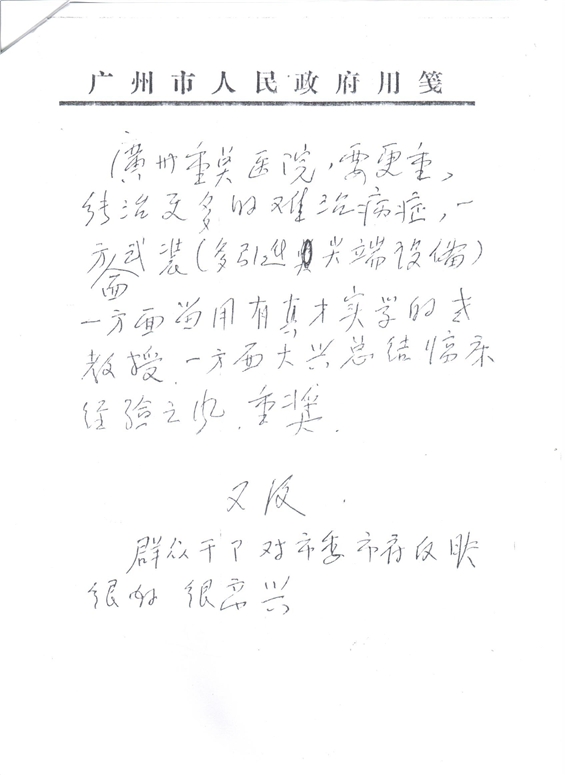 广州市人民政府用笺
廣州重点医院，要更重，
能治更多的难治病症，一
方面武装（多引进尖端设备）
一方面当用有真才实学的老
教授．一方面大兴总结临床
经验之风．重奖．
又及．
群众干了对市委市府反映
很好 很高兴